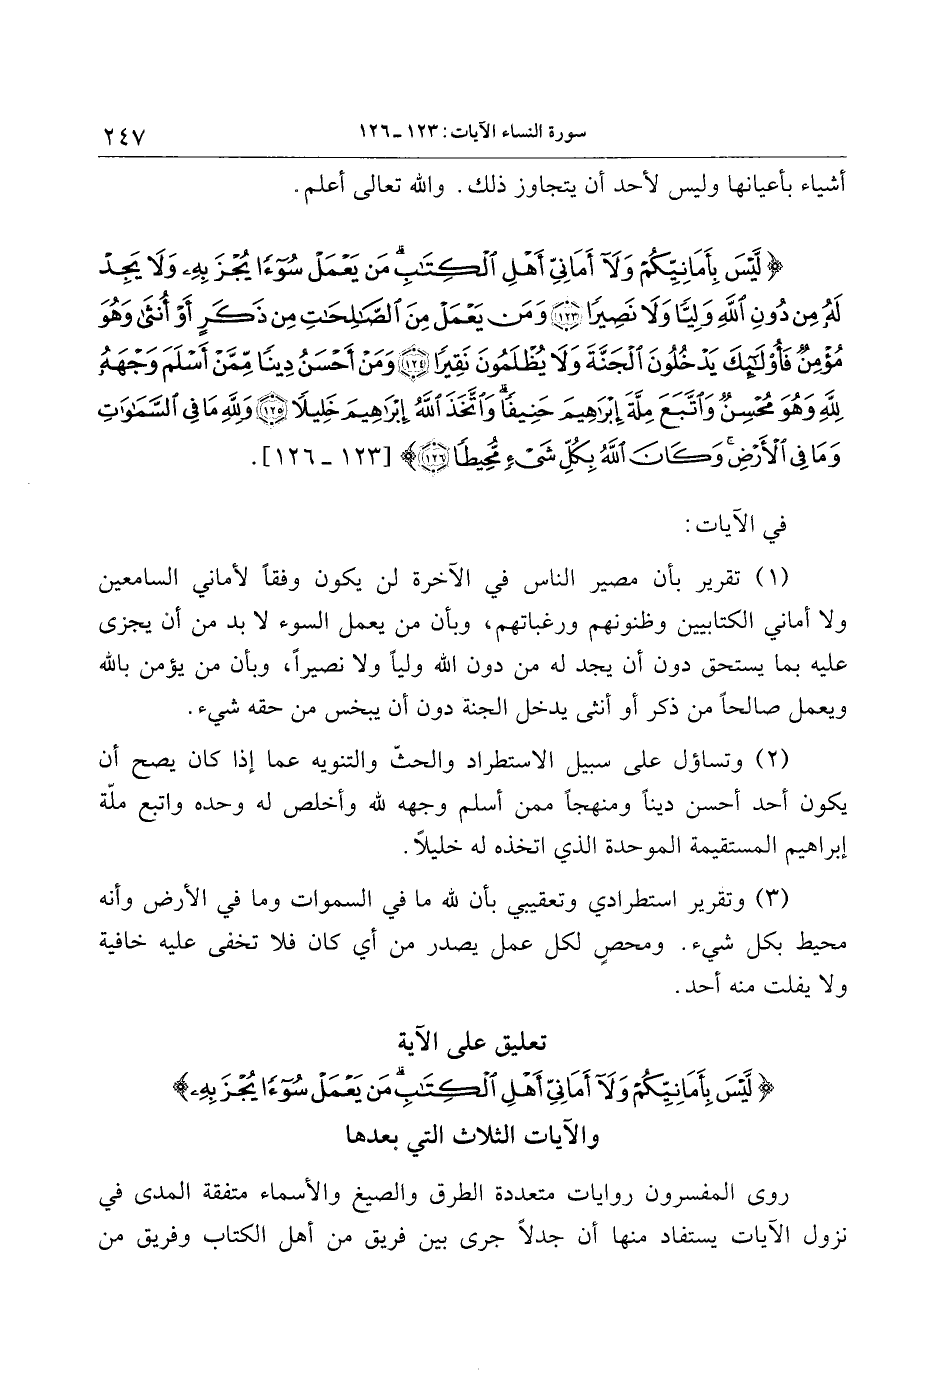 سورة النساء الآيات: ١٢٣ ـ ١٢٦ ٢٤٧
أشياء بأعيانها وليس لأحد أن يتجاوز ذلك. والله تعالى أعلم.
﴿لَّيْسَ بِأَمَانِيِّكُمْ وَلَآ أَمَانِيِّ أَهْلِ ٱلْكِتَٰبِۗ مَن يَعْمَلْ سُوٓءًا يُجْزَ بِهِۦ وَلَا يَجِدْ
لَهُۥ مِن دُونِ ٱللَّهِ وَلِيًّا وَلَا نَصِيرًا ١٢٣ وَمَن يَعْمَلْ مِنَ ٱلصَّٰلِحَٰتِ مِن ذَكَرٍ أَوْ أُنثَىٰ وَهُوَ
مُؤْمِنٌ فَأُو۟لَٰٓئِكَ يَدْخُلُونَ ٱلْجَنَّةَ وَلَا يُظْلَمُونَ نَقِيرًا ١٢٤ وَمَنْ أَحْسَنُ دِينًا مِّمَّنْ أَسْلَمَ وَجْهَهُۥ
لِلَّهِ وَهُوَ مُحْسِنٌ وَٱتَّبَعَ مِلَّةَ إِبْرَٰهِيمَ حَنِيفًاۗ وَٱتَّخَذَ ٱللَّهُ إِبْرَٰهِيمَ خَلِيلًا ١٢٥ وَلِلَّهِ مَا فِى ٱلسَّمَٰوَٰتِ
وَمَا فِى ٱلْأَرْضِۚ وَكَانَ ٱللَّهُ بِكُلِّ شَىْءٍ مُّحِيطًا ١٢٦﴾ [١٢٣ ـ ١٢٦].
في الآيات:
(١) تقرير بأن مصير الناس في الآخرة لن يكون وفقاً لأماني السامعين
ولا أماني الكتابيين وظنونهم ورغباتهم، وبأن من يعمل السوء لا بد من أن يجزى
عليه بما يستحق دون أن يجد له من دون الله ولياً ولا نصيراً، وبأن من يؤمن بالله
ويعمل صالحاً من ذكر أو أنثى يدخل الجنة دون أن يبخس من حقه شيء.
(٢) وتساؤل على سبيل الاستطراد والحثّ والتنويه عما إذا كان يصح أن
يكون أحد أحسن ديناً ومنهجاً ممن أسلم وجهه لله وأخلص له وحده واتبع ملّة
إبراهيم المستقيمة الموحدة الذي اتخذه له خليلاً.
(٣) وتقرير استطرادي وتعقيبي بأن لله ما في السموات وما في الأرض وأنه
محيط بكل شيء. ومحصٍ لكل عمل يصدر من أي كان فلا تخفى عليه خافية
ولا يفلت منه أحد.
تعليق على الآية
﴿لَّيْسَ بِأَمَانِيِّكُمْ وَلَآ أَمَانِيِّ أَهْلِ ٱلْكِتَٰبِۗ مَن يَعْمَلْ سُوٓءًا يُجْزَ بِهِۦ﴾
والآيات الثلاث التي بعدها
روى المفسرون روايات متعددة الطرق والصيغ والأسماء متفقة المدى في
نزول الآيات يستفاد منها أن جدلاً جرى بين فريق من أهل الكتاب وفريق من